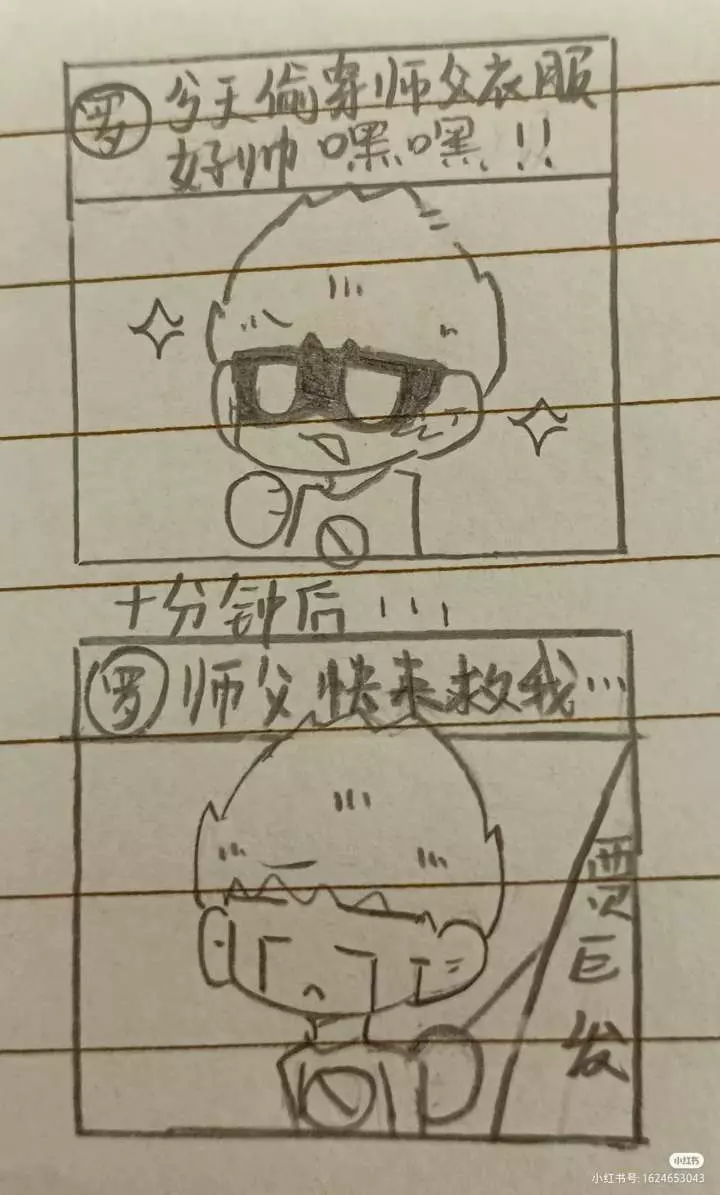 罗 今天偷穿师父衣服
好帅嘿嘿!!
十分钟后...
罗 师父快来救我...
贾巨发
小红书
小红书号: 1624653043